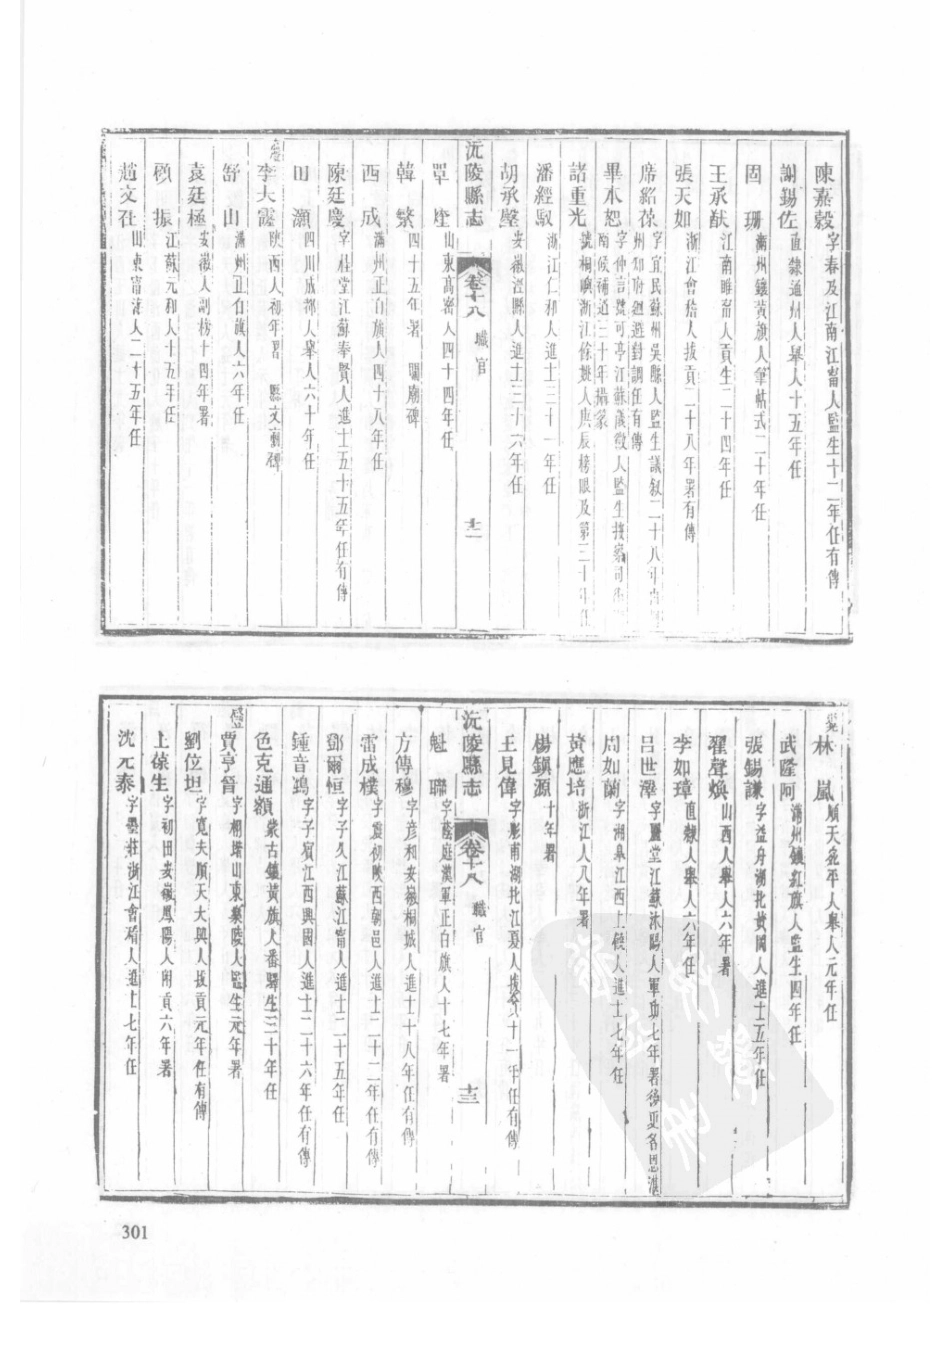 陳嘉穀 字春及江南江甯人監生十二年任有傳
謝錫佐 直隸通州人舉人十五年任
固珊 滿州鑲黃旗人筆帖式二十年任
王承猷 江南睢甯人貢生二十四年任
張天如 浙江會稽人拔貢二十八年署有傳
席紹葆 字宜民蘇州吳縣人監生議叙二十八年由
州知府廻避對調任有傳
畢本恕 字仲言號可亭江蘇儀徵人監生按察司
南候補道三十年攝篆
諸重光 號桐嶼浙江餘姚人庚辰榜眼及第三十年任
潘經馭 浙江仁和人進士三十一年任
胡承壂 安徽涇縣人進士三十六年任
沅陵縣志 卷十八 職官 十二
單烇 山東高密人四十四年任
韓繁 四十五年署 關廟碑
西成 滿州正白旗人四十八年任
陳廷慶 字桂堂江蘇奉賢人進士五十五年任有傳
田灝 四川成都人舉人六十年任
李大霳 陝西人初年署 縣文廟碑
舒山 滿州正白旗人六年任
袁廷極 安徽人副榜十四年署
顧振 江蘇元和人十五年任
趙文在 山東甯海人二十五年任
林嵐 順天宛平人舉人元年任
武隆阿 滿州鑲紅旗人監生四年任
張錫謙 字益舟湖北黃岡人進士五年任
翟聲煥 山西人舉人六年署
李如璋 直隸人舉人六年任
呂世澤 字豐堂江蘇沭陽人軍功七年署後更名恩湛
周如蘭 字湘皋江西上饒人進士七年任
黃應培 浙江人八年署
楊鎮源 十年署
王見偉 字彤甫湖北江夏人拔貢十一年任有傳
沅陵縣志 卷十八 職官 十三
魁聯 字蔭庭漢軍正白旗人十七年署
方傳穆 字彥和安徽桐城人進士十八年任有傳
雷成樸 字震初陝西朝邑人進士二十二年任有傳
鄧爾恒 字子久江蘇江甯人進士二十五年任
鍾音鴻 字子賓江西興國人進士二十六年任有傳
色克通額 蒙古鑲黃旗人番驛生三十年任
咸豐
賈亨晉 字相堦山東樂陵人監生元年署
劉位坦 字寬夫順天大興人拔貢元年任有傳
上葆生 字初田安徽鳳陽人附貢六年署
沈元泰 字墨莊浙江會稽人進士七年任
301